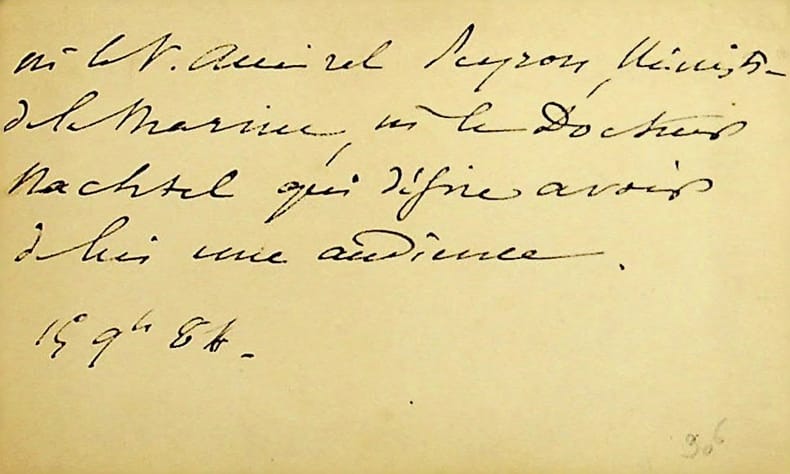 M. le V. Amiral Peyron, Ministre
de la Marine, M. le Docteur
Nachtel qui désire avoir
de lui une audience.
15 9bre 84.
306